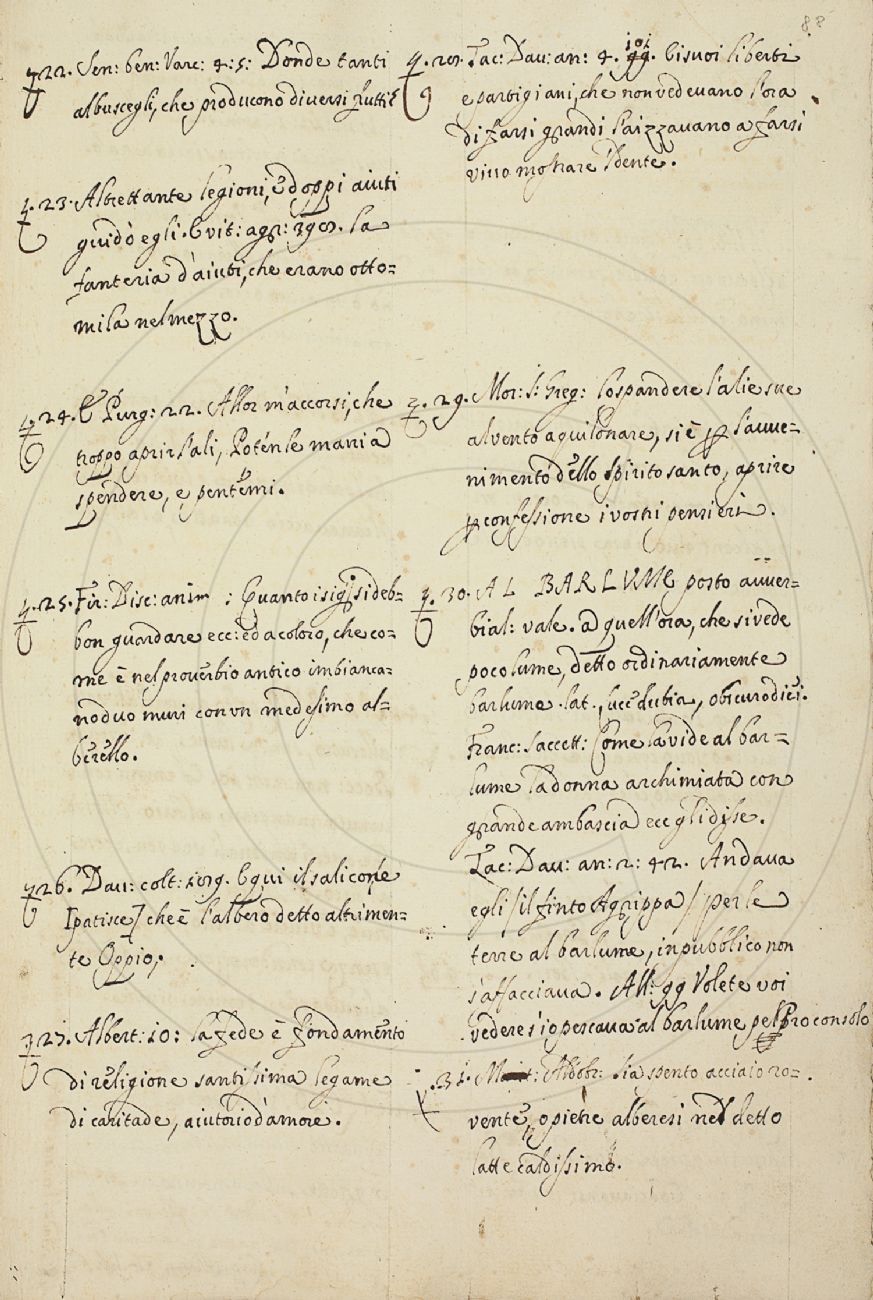 88
22. Sen: ben: Varc: 4: 5: Donde tanti
albuscegli, che producono diversi frutti
23. Altrettante legioni, e doppi aiuti
guidò egli. E vit: agr: 398. la
fanteria d'aiuti, che erano otto=
mila nel mezzo.
24. E Purg: 22. Allor m'accorsi, che
troppo aprir l'ali, Potén le mani a
spendere, e pentémi.
25. Fir: Disc: anim: Quanto i sig.ri si deb=
bon guardare ecc: ed a coloro, che co=
me è nel proverbio antico imbianca=
no duo muri con un medesimo al=
berello.
26. Dav: colt: E qui il salicone
[patisce] che è l'albero detto altrimen=
te Oppio,
27. Albert: 10: la fede è fondamento
di religione santissima legame
di caritade, aiutorio d'amore.
28. Tac: Dav: an: 4. 101 E i suoi liberti
e partigiani, che non vedevano l'ora
di farsi grandi l'aizzavano a farsi
vivo mostrare 'l dente.
29. Mor: S. Greg: lo spandere l'alie sue
al vento aquilonare, si è p l'avve=
nimento dello Spirito santo, aprire
p confessione i vostri pensieri.
30. AL BARLUME posto avver=
bial: vale. a quell'ora, che si vede
poco lume, detto ordinariamente
barlume. lat. luce dubia, obscuro diei.
Franc: Sacchett: Come la vide al bar=
lume la donna archimiata con
grande ambascia ecc gli disse.
Tac: Dav: an: 2: 42. Andava
egli / il finto Agrippa / per le
terre al barlume, in pubblico non
s'affacciava. All: 99 Volete voi
vedere s'io pescava al barlume pel Proconsolo
31. Aldobr: Sia spento acciaio ro=
vente, o pietre alberesi nel detto
latte caldissimo.